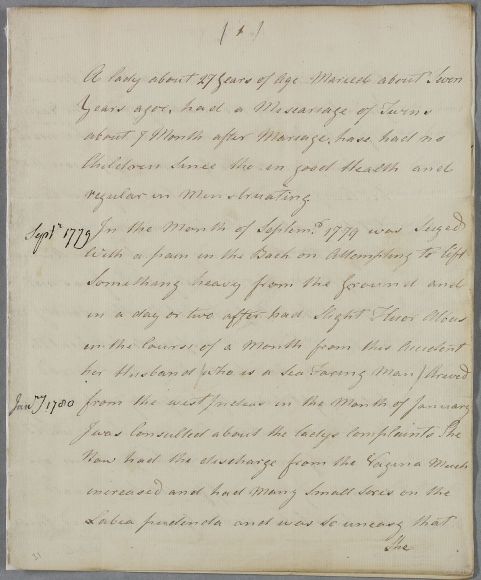 ( 1 )
A lady about 27 years of Age Maried about Seven
Years agoe, had a Miscariage of Twins
about 7 Month after Mariage, hase had no
Children Since tho in good Health and
regular in Menstruating
Septr 1779 In the Month of Septemr 1779 was Seized
With a pain in the Back on Attempting to lift
Something heavy from the Ground and
in a day or two after had Slight Fluor Albus
in the Course of a Month from this Accident
her Husband (who is a Sea Faring Man) Arived
Janry 1780 from the west Indies in the Month of January
I was Consulted about the ladys Complaints She
Now had the discharge from the Vagina Much
increased and had Many Small Sores on the
Labia pudenda and was So uneasy that
She